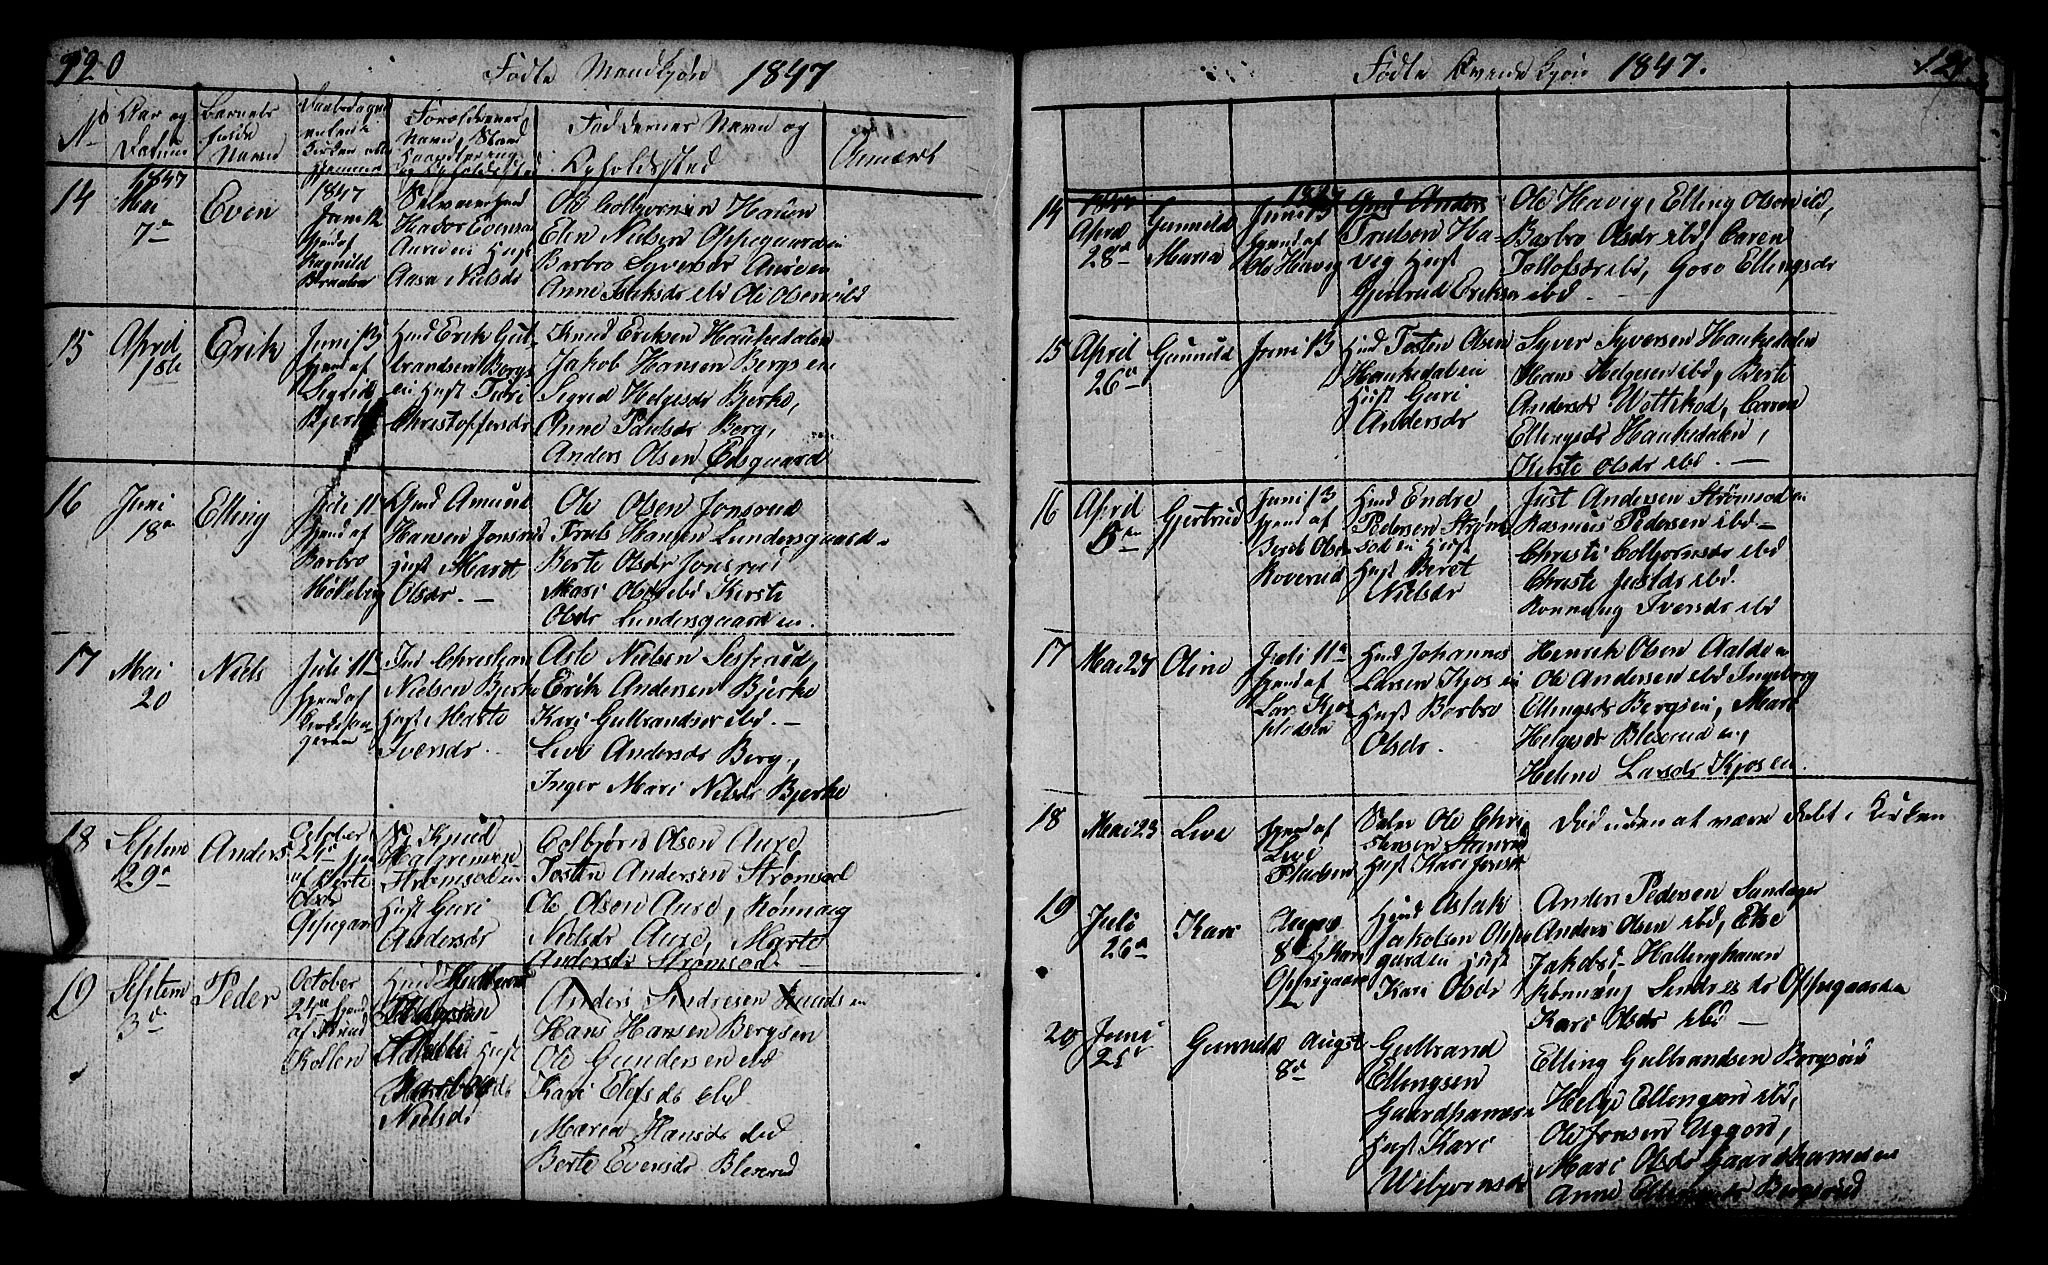 120
Födte Mandkjön 1847
No
Aar og
Datum
Barnets
fulde
Navn
Forældrenes
Navn, Stand
Haandtering
og Opholdsted
Faddernes Navn og
Opholdssted
Anmærk
14
1847
Mai
7de
Even
1847
Juni 12
hjemd af
Ragnild
Braaten
Selveier
Hador Evensen
Aureien Hust
Aasa Nielsdr
Ole Colbjörnsen Hauen
Elen Nielsen Oppegaarden
Barbro Syversdr Auréen
Anne Falksdr ibd Ole Olsen ibd
15
April
18de
Erik
Juni 13
hjemd af
Sigrid
Bjerke
Hmd Erik Gul-
brandsen Bergs
ei Hust Turi
Christoffersdr
Knud Eriksen Haukedalen
Jakob Hansen Bergs en
Sigrid Helgesdr Bjerke,
Anne Paulsdr Berg,
Anders Olsen Edsgaard
16
Juni
18de
Elling
Juli 11
hjemd af
Barbro
Holleberg
Gmd Amund
Hansen Jonsrud
Hust Marit
Olsdr. —
Ole Olsen Jonsrud
Truls Hansen Lundersgaard-
Berte Olsdr Jonsrud
Mari Olsdr ibd Kirste
Olsdr Lundersgaarden.
17
Mai
20
Niels
Juli 11
hjemd af
Ind Christian
Nielsen Bjerke
Hust Marte
Iversdr.
Asle Nielsen Sesserud,
Erik Andersen Bjerke
Kari Gulbrandsdr ibd. —
Live Andersdr Berg,
Inger Mari Nielsdr Bjerke
18
Septem
29de
Anders
October
24de hjem
af Berte
Olsdr
Oppegaard
Knud
Halgrimsen
Strömsoden
Hust Guri
Andersdr
Colbjörn Olsen Aure
Tosten Andersen Strömsod
Ole Olsen Aure, Rönnaug
Nielsdr Aure, Marte
Andersdr Strömsod —
19
Septem
3de
Peder
October
24de hjemd
af
Kollen
Hust
Nielsdr
Anders Sindresen Ruuds en
Hans Hansen Bergsen
Ole Gundersen ibd
Kari Elefsdr ibd
Maria Hansdr ibd
Berte Evensdr Bleserud
Födte Qvindekjön 1847.
121
14
1847
April
28de
Gunnild
Maria
1847
Juni 13
hjemd af
Ole Havig
Gmd Anders
Trulsen Ha-
vig Hust
Gjertrud Eriksdr
Ole Havig, Elling Olsen ibd,
Barbro Olsdr ibd, Caren
Tollofsdr ibd, Goro Ellingsdr
ibd. —
15
April
26de
Gunnild
Juni 13
Hmd Tosten Olsen
Haukedalen
Hust Guri
Andersdr
Syver Syversen Haukedalen
Hans Helgesen ibd, Berte
Andersdr Wottskod, Caren
Ellingsdr Haukedalen,
Kirste Olsdr ibd. —
16
April
5de
Gjertrud
Juni 13
hjemd af
Berit Olsdr
Roverud
Hmd Endre
Pedersen Ström
sod en Hust
Hust Beret
Nielsdr
Just Andersen Strömsoden
Rasmus Pedersen ibd —
Christi Colbjörnsdr ibd
Christe Justdr ibd.
Ronnaug Iversdr ibd
17
Mai 27
Oline
Juli 11de
hjemd af
Lars Kjos
pladsen
Hmd Johannes
Larsen Kjos en
Hust Barbro
Olsdr.
Henrik Olsen Aalden
Ole Andersen ibd Ingeborg
Ellingsdr Bergsien, Mari
Helgesdr Bleserud en,
Helene Larsdr Kjosen.
18
Mai 23
Live
hjemd af
Live
Pladsen
Ole Chri
stensen
Hust Kari Jonsdr
Död uden at være döbt i Kirken
19
Juli
26de
Kari
August
8de hj. Kari
Oppegaard
Hmd Aslak
Jakobsen Oppe
gaarden Hust
Kari Olsdr
Anders Pedersen Sandager
Anders Olsen ibd, Else
Jakobsd Hallinghauen
Rönnaug Sindresdr Oppegaarden
Kari Olsdr ibd —
20
Juni
25de
Gunneld
August
8de
Gulbrand
Ellingsen
Gaardhamren
Hust Kari
Wibjörnsdr
Elling Gulbrandsen Bergsöid
Helge Ellingsen ibd,
Ole Jonsen Uggen,
Mari Olsdr Gaardhamren
Anne Ellingsdr Bergsöid